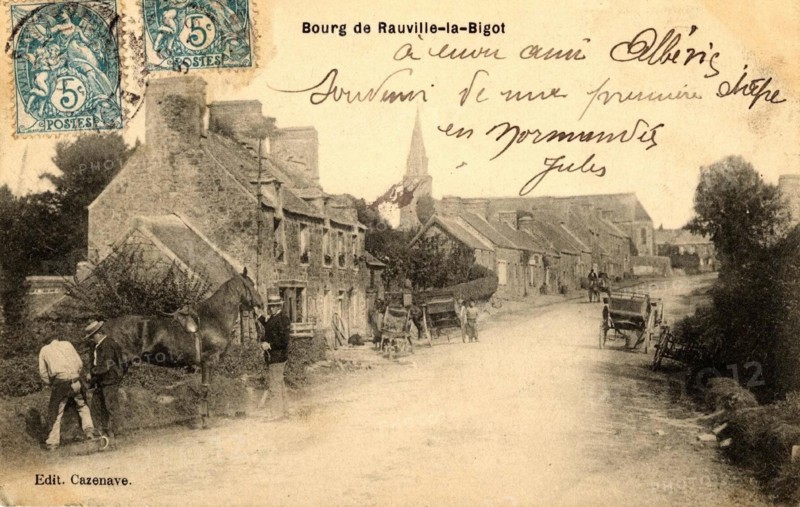 Bourg de Rauville-la-Bigot
5
POSTES
5
POSTES
à mon ami Albéric
Souvenir de une première étape
en Normandie
Jules
Edit. Cazenave.
PHOTO12